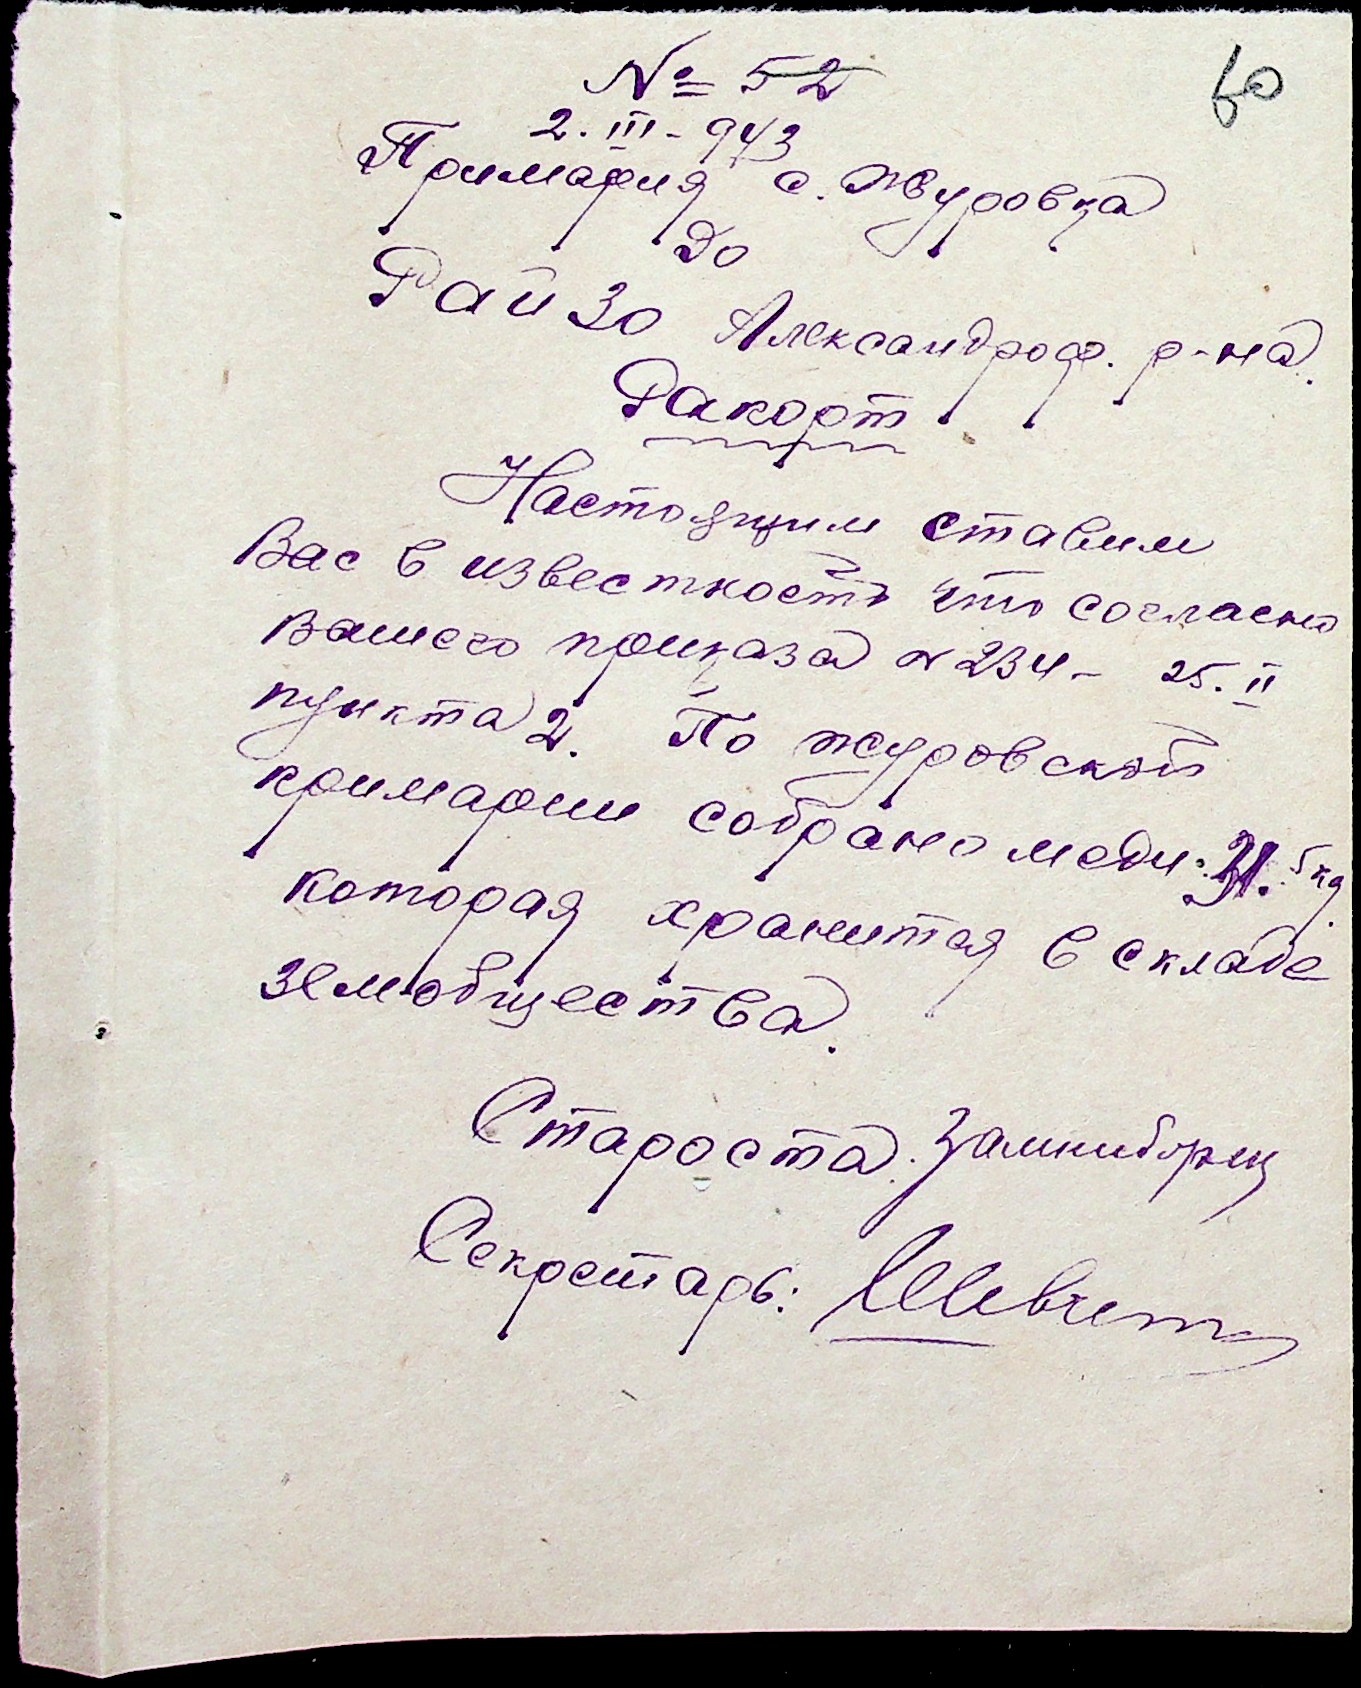 60
№ 52
2. III - 943
Примария с. Журовка
До
Райзо Александроф. р-на.
Рапорт
Настоящим ставим
Вас в известность что согласно
Вашего приказа № 234 - 25. II
пункта 2. По Журовской
примарии собрано меди: 31.5 кг
которая хранится в складе
земобщества.
Староста.
Секретарь: